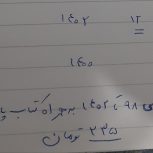 ۱۴۰۲ ۱۲
۱۴۰۰
۹۸ تا ۱۴۰۲ به همراه کتاب
۲۳۵ تومان